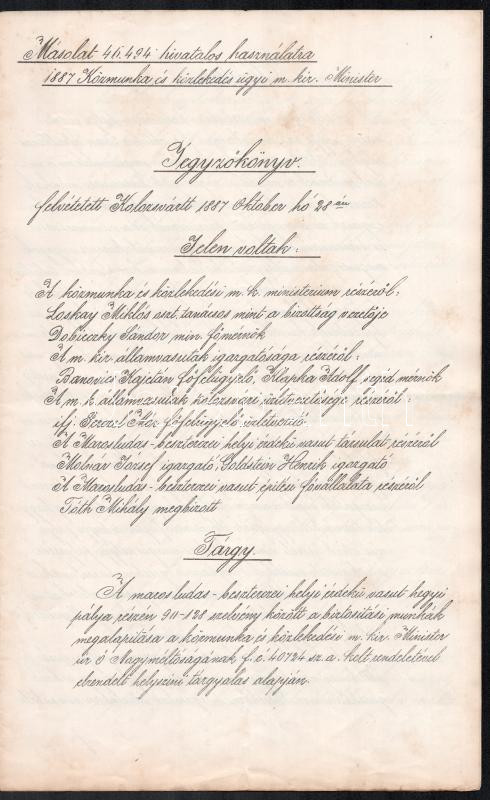 Másolat 46.494 hivatalos használatra
1887 Közmunka és közlekedés ügyi m. kir. Minister
Jegyzőkönyv.
felvétetett Kolozsvártt 1887 Oktober hó 28 án
Jelen voltak:
A közmunka és közlekedési m. k. ministerium részéről:
Loskay Miklós oszt. tanácsos mint a bizottság vezetője
Dobieczky Sándor min. főmérnök
A m. kir. államvasutak igazgatósága részéről:
Banovics Kajetán főfelügyelő, Klapka Adolf segéd mérnök
A m. k. államvasutak kolozsvári üzletvezetősége részéről:
ifj. főfelügyelő üzletvezető
A Marosludas-beszterczei helyi érdekű vasut társulat részéről
Molnár József igazgató, Goldstein Henrik igazgató
A Marosludas-beszterczei vasut építési fővállalata részéről
Tóth Mihály megbizott
Tárgy.
A maros ludas-beszterczei helyi érdekű vasut hegyi
pálya részén 90-128 szelvény között a biztosítási munkák
megalapitása a közmunka és közlekedési m. kir. Minister
úr ő Nagyméltóságának f. é. 40724 sz. a. kelt rendeletével
elrendelt helyszini tárgyalás alapján.